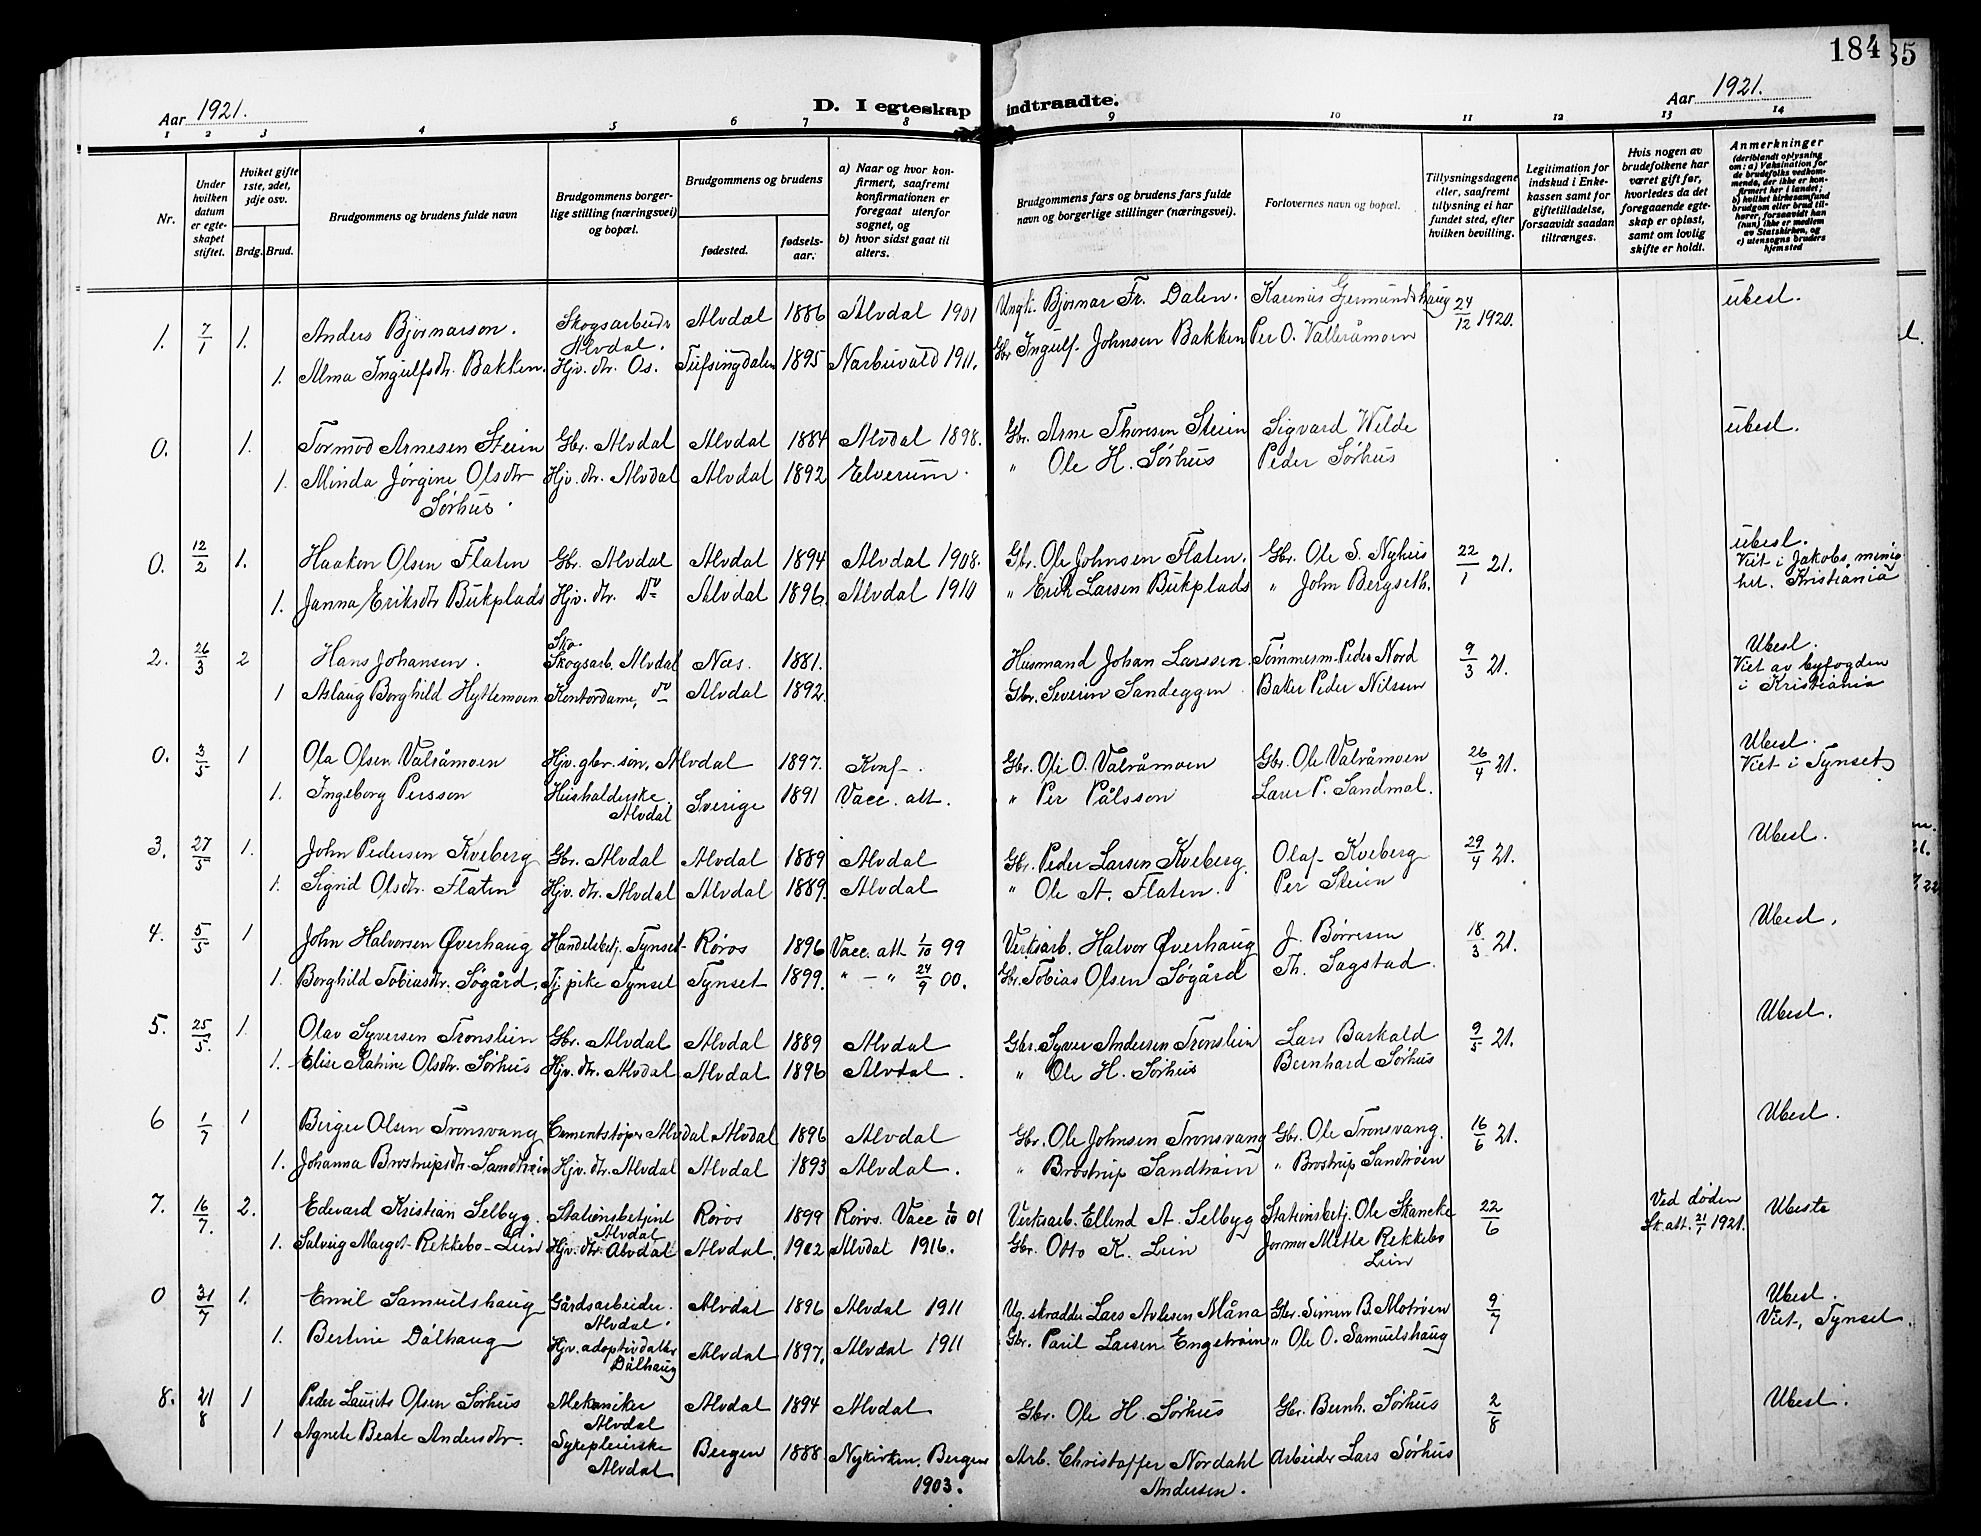 184
85
Aar 1921.
D. I egteskap indtraadte.
Aar 1921.
1 2 3 4 5 6 7 8 9 10 11 12 13 14
Nr.
Under hvilken datum er egteskapet stiftet.
Hvilket gifte 1ste, 2det, 3dje osv.
Brdg. Brud.
Brudgommens og brudens fulde navn
Brudgommens borgerlige stilling (næringsvei) og bopæl.
Brudgommens og brudens
fødested.
fødselsaar.
a) Naar og hvor konfirmert, saafremt konfirmationen er foregaat utenfor sognet, og
b) hvor sidst gaat til alters.
Brudgommens fars og brudens fars fulde navn og borgerlige stillinger (næringsvei).
Forlovernes navn og bopæl.
Tillysningsdagene eller, saafremt tillysning ei har fundet sted, efter hvilken bevilling.
Legitimation for indskud i Enkekassen samt for giftetilladelse, forsaavidt saadan tiltrænges.
Hvis nogen av brudefolkene har været gift før, hvorledes da det foregaaende egteskap er opløst, samt om lovlig skifte er holdt.
Anmerkninger
(deriblandt oplysning om: a) Vaksination for de brudefolks vedkommende, der ikke er konfirmert her i landet; b) hvilket kirkesamfund brudgom eller brud tilhører, forsaavidt han (hun) ikke er medlem av Statskirken, og c) utensogns bruders hjemsted
1. 7/1 1. Anders Bjørnarson. Skogsarbeider Alvdal. Alvdal 1886 Alvdal 1901 Ungk. Bjørnar Fr. Dalen. Karinus Germundshaug 24/12 1920. ubesl.
1. Alma Ingulfsdtr. Bakken. Hjv. dtr. Os. Tufsingdalen 1895 Narbuvold 1911. Gbr Ingulf Johnsen Bakken Per O. Valleråmoen
0. 1. Tormod Arnesen Steien Gbr. Alvdal Alvdal 1884 Alvdal 1898. Gbr. Arne Thoresen Steien Sigvard Welde ubesl.
1. Minda Jørgine Olsdtr Sørhus. Hjv. dtr. Alvdal Alvdal 1892 Elverum. " Ole H. Sørhus Peder Sørhus
0. 12/2 1. Haakon Olsen Flaten Gbr. Alvdal Alvdal 1894 Alvdal 1908. Gbr. Ole Johnsen Flaten. Gbr. Ole S. Nyhus 22/1 21. ubesl. Viet i Jakobs menighet. Kristiania
1. Janna Eriksdtr Bukplads Hjv. dtr. Do Alvdal 1896. Alvdal 1910 " Erik Larsen Bukplads " John Bergseth.
2. 26/3 2 Hans Johansen. Sko- Skogsarb. Alvdal Næs. 1881. Husmand Johan Larssen. Tømmerm. Peder Nord 9/3 21. Ubesl. Viet av byfogden i Kristiania
1 Aslaug Borghild Hyttemoen Kontordame, do Alvdal 1892. Gbr. Severin Sandeggen Baker Peder Nilssen
0. 3/5 1 Ola Olsen Valråmoen Hjv. gbr. søn, Alvdal 1897. Konf. Gbr. Ole O. Valråmoen Gbr. Ole Valråmoen 26/4 21. Ubesl. Viet i Tynset
1. Ingeborg Persson Husholderske Alvdal Sverige 1891 Vacc. att. " Per Pålsson Laur P. Sandmæl.
3. 27/5 1. John Pedersen Kveberg Gbr. Alvdal Alvdal 1889 Alvdal Gbr. Peder Larsen Kveberg Olaf Kveberg 29/4 21. Ubesl.
1. Sigrid Olsdtr. Flaten Hjv. dtr. Alvdal Alvdal 1889. Alvdal " Ole A. Flaten. Per Steien
4. 5/5 1 John Halvorsen Øverhaug Handelsbetj. Tynset Røros 1896 Vacc. att 1/10 99 Verksarb. Halvor Øverhaug J. Børresen 18/3 21. Ubesl.
1. Borghild Tobiasdtr. Søgård. Tj. pike Tynset Tynset 1899. " — " 24/9 00. Gbr. Tobias Olsen Søgård Th. Sagstad.
5. 25/5. 1. Olav Syversen Tronslien Gbr. Alvdal Alvdal 1889 Alvdal Gbr. Syver Andersen Tronslien Lars Barkald 9/5 21. Ubesl.
1. Elise Katrine Olsdtr. Sørhus Hjv. dtr. Alvdal Alvdal 1896 Alvdal. " Ole H. Sørhus Bernhard Sørhus
6 1/7 1 Birger Olsen Tronsvang Cementstøper Alvdal Alvdal 1896 Alvdal Gbr. Ole Johnsen Tronsvang Gbr. Ole Tronsvang. 16/6 21. Ubesl.
1. Johanna Brostrupsdtr. Sandtrøen Hjv. dtr. Alvdal Alvdal 1893 Alvdal. " Brostrup Sandtrøen " Brostrup Sandtrøen
7. 16/7. 2. Edevard Kristian Selbyg. Stationsbetjent Alvdal Røros 1899 Røros. Vacc 1/10 01 Verksarb. Ellend A. Selbyg Stationsbetj. Ole Skancke 22/6 Ved døden Sk. att. 21/7 1921. Ubeste
1. Solveig Margot Rekkebo-Lien Hjv. dtr. Alvdal Alvdal. 1902 Alvdal 1916. Gbr. Otto K. Lien Jormor Mette Rekkebo Lien
0 31/7 1. Emil Samuelshaug Gårdsarbeider. Alvdal. Alvdal 1896 Alvdal 1911 Ug. skrædder Lars Avlesen Måna Gbr. Simen B. Motrøen 9/7 Ubesl. Viet, Tynset
1. Bertine Dålhaug Hjv. adoptivdatter Dålhaug Alvdal 1897. Alvdal 1911 Gbr. Paul Larsen Engetrøen " Ole O. Samuelshaug
8. 21/8 1 Peder Laurits Olsen Sørhus Mekaniker Alvdal Alvdal 1894 Alvdal Gbr. Ole H. Sørhus Gbr. Bernh. Sørhus 2/8 Ubesl.
1 Agnete Beate Andersdtr. Sykepleierske Alvdal Bergen 1888 Nykirken. Bergen 1903. Arb. Christoffer Nordahl Andersen. Arbeider Lars Sørhus